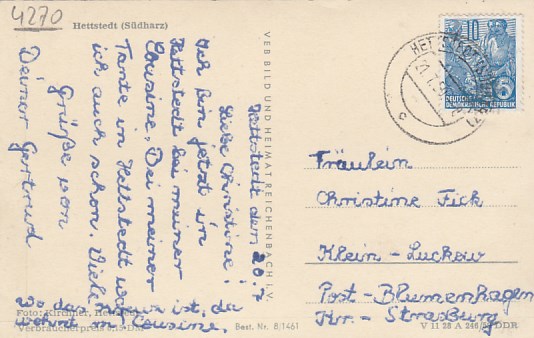 4270
Hettstedt (Südharz)
Hettstedt den 20.7
Liebe Christine!
Ich bin jetzt in
Hettstedt bei meiner
Cousine. Bei meiner
Tante in Hettstedt war
ich auch schon. Viele
Grüße von
Deiner Gertrud
Wo das Kreuz ist, da
wohnt m. Cousine.
Foto: Kirchner,
Verbraucherpreis
Best. Nr. 8/1461
VEB BILD UND HEIMAT REICHENBACH I. V.
10
DEUTSCHE
DEMOKRATISCHE REPUBLIK
Fräulein
Christine Fick
Klein-Luckow
Post-Blumenhagen
Kr.-Strasburg
V 11 28 A 246/ DDR